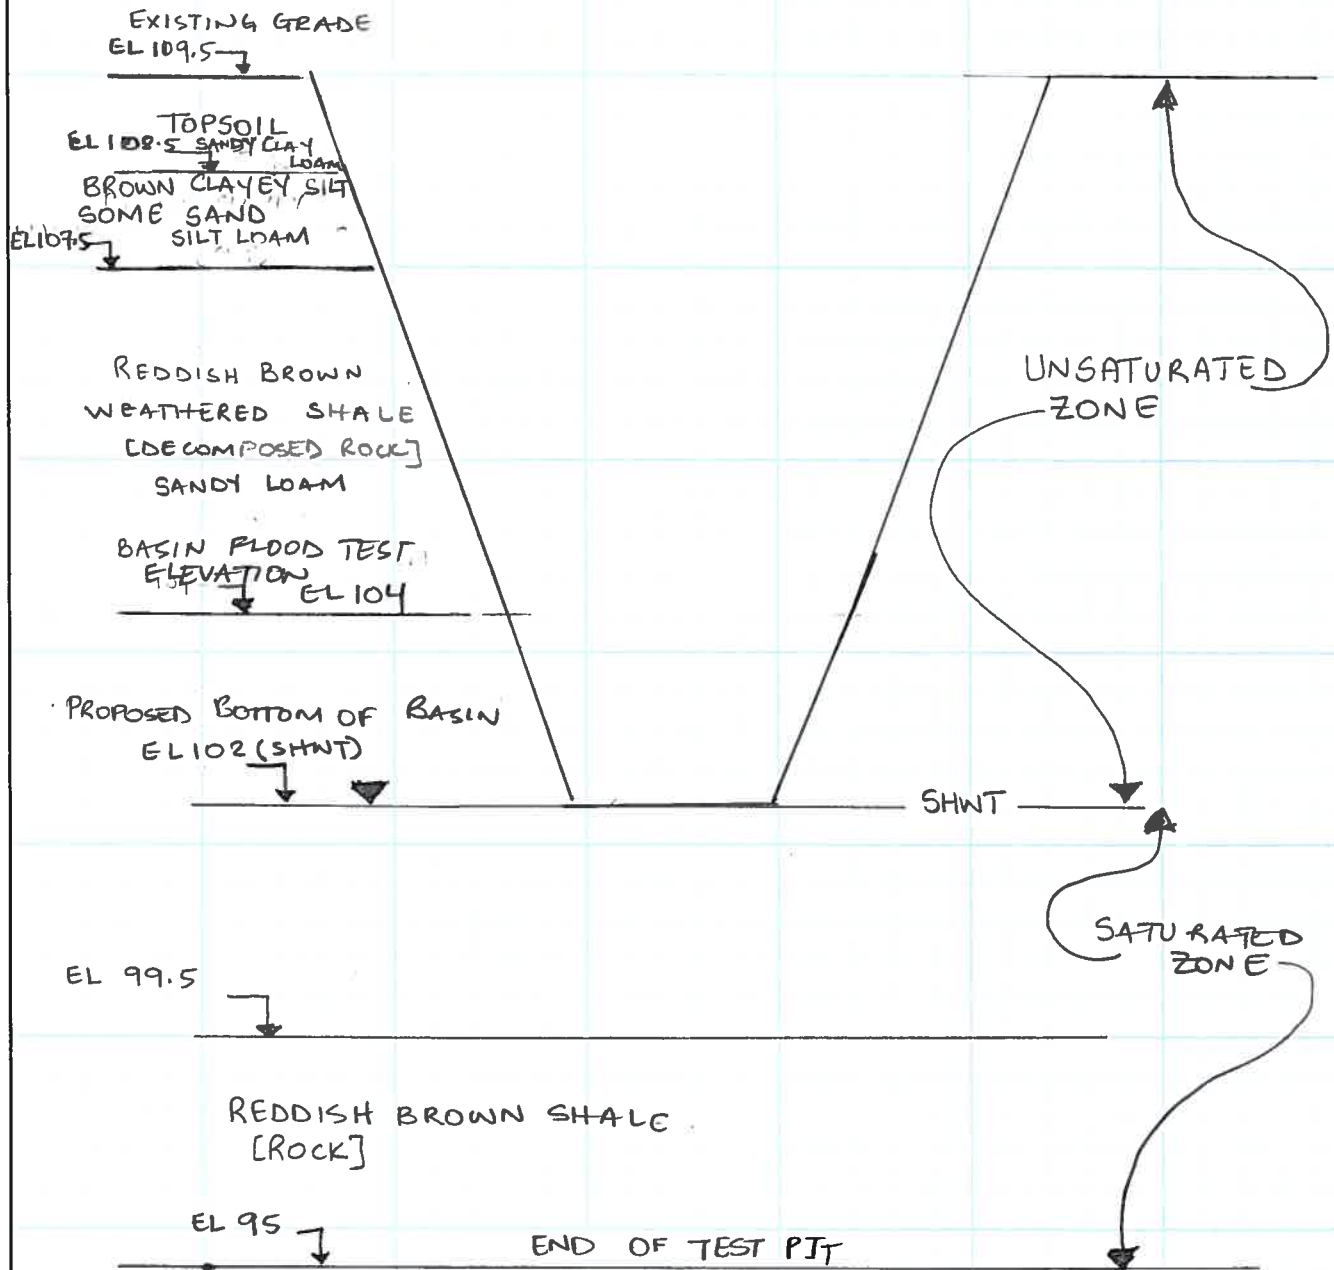 EXISTING GRADE
EL 109.5
TOPSOIL
EL 108.5 SANDY CLAY
LOAM
BROWN CLAYEY SILT
SOME SAND
EL107.5 SILT LOAM
REDDISH BROWN
WEATHERED SHALE
[DECOMPOSED ROCK]
SANDY LOAM
UNSATURATED
ZONE
BASIN FLOOD TEST
ELEVATION
EL 104
PROPOSED BOTTOM OF BASIN
EL 102 (SHWT)
SHWT
SATURATED
ZONE
EL 99.5
REDDISH BROWN SHALE
[ROCK]
EL 95
END OF TEST PIT